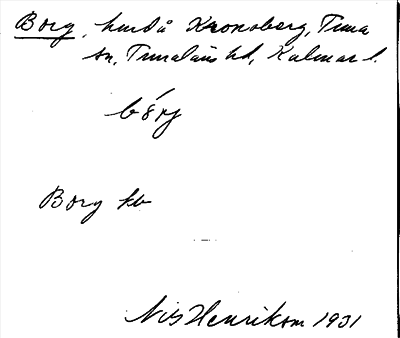 Borg, hmd å Kronoberg, Tuna
sn, Tunaläns hd, Kalmar l.
Borg kv
Nils Henrikson 1931